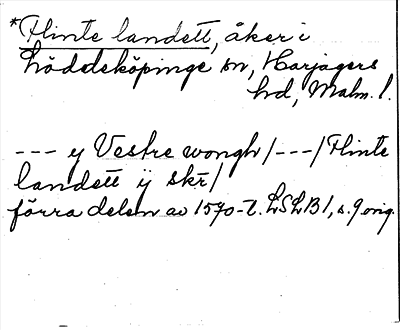 *Flinte landett, åker i
Löddeköpinge sn, Harjagers
hd, Malm. l.
--- y Vestre wongh/---/Flinte
landett ÿ skr̄/
förra delen av 1570-t. LSLB 1, s. 9 orig.